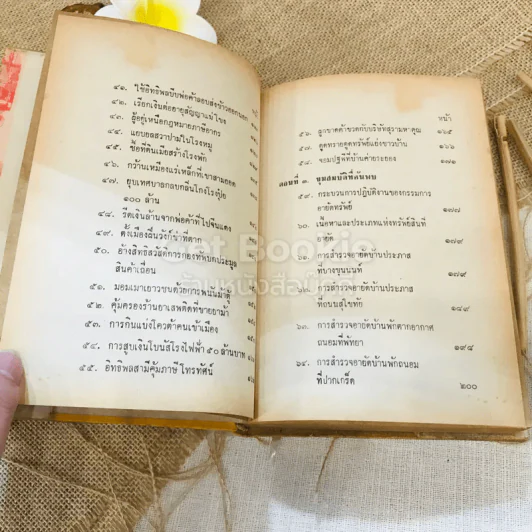 ๔๑. ใช้อิทธิพลบีบพ่อค้าลอบส่งข้าวออกนอก
๔๒. เรียกเงินต่ออายุสัญญาแม่โขง
๔๓. ผู้อยู่เหนือกฎหมายภาษีอากร
๔๔. แยบยลสวาปามในโรงหมู
๔๕. ซื้อที่ดินเมียสร้างโรงพัก
๔๖. กว้านเหมืองแร่เหล็กที่เขาสามยอด
๔๗. ยุบเทศบาลกลบกลิ่นโกงโรงปุ๋ย
๑๐๐ ล้าน
๔๘. รีดเงินล้านจากพ่อค้าที่ไปจีนแดง
๔๙. ตั้งเมืองขึ้นวังก์ว่าที่ตาก
๕๐. อ้างสิทธิสวัสดิการกองทัพบกประมูล
สินค้าเถื่อน
๕๑. มอมเมาเยาวชนด้วยการพนันม้าตู้
๕๒. คุ้มครองร้านยาเสพติดที่ขายยาม้า
๕๓. การกินแบ่งโควต้าคนเข้าเมือง
๕๔. การสูบเงินโบนัสโรงไฟฟ้า ๕๐ ล้านบาท
๕๕. อิทธิพลสามีคุ้มภาษี ไทรทัศน์
หน้า
๕๖. ลูกขาดค้าขวดกับบริษัทสุรามหาคุณ ๑๖๕
๕๗. ดูดทรายดูดทรัพย์แย่งชาวบ้าน ๑๖๖
๕๘. จอมปฐพีที่บ้านค่ายระยอง ๑๗๑
ตอนที่ ๓. ขุมสมบัติที่ค้นพบ
๕๙. กระบวนการปฏิบัติงานของกรรมการ
อายัดทรัพย์ ๑๗๗
๖๐. เนื้อหาและประเภทแห่งทรัพย์สินที่
อายัด ๑๗๗
๖๑. การสำรวจอายัดบ้านประภาส
ที่บางขุนนนท์ ๑๗๙
๖๒. การสำรวจอายัดบ้านประภาส
ที่ถนนสุโขทัย ๑๘๙
๖๓. การสำรวจอายัดบ้านพักตากอากาศ
ถนอมที่พัทยา ๑๙๔
๖๔. การสำรวจอายัดบ้านพักถนอม
ที่ปากเกร็ด ๒๐๐
Cat Bookie
ร้านหนังสือ